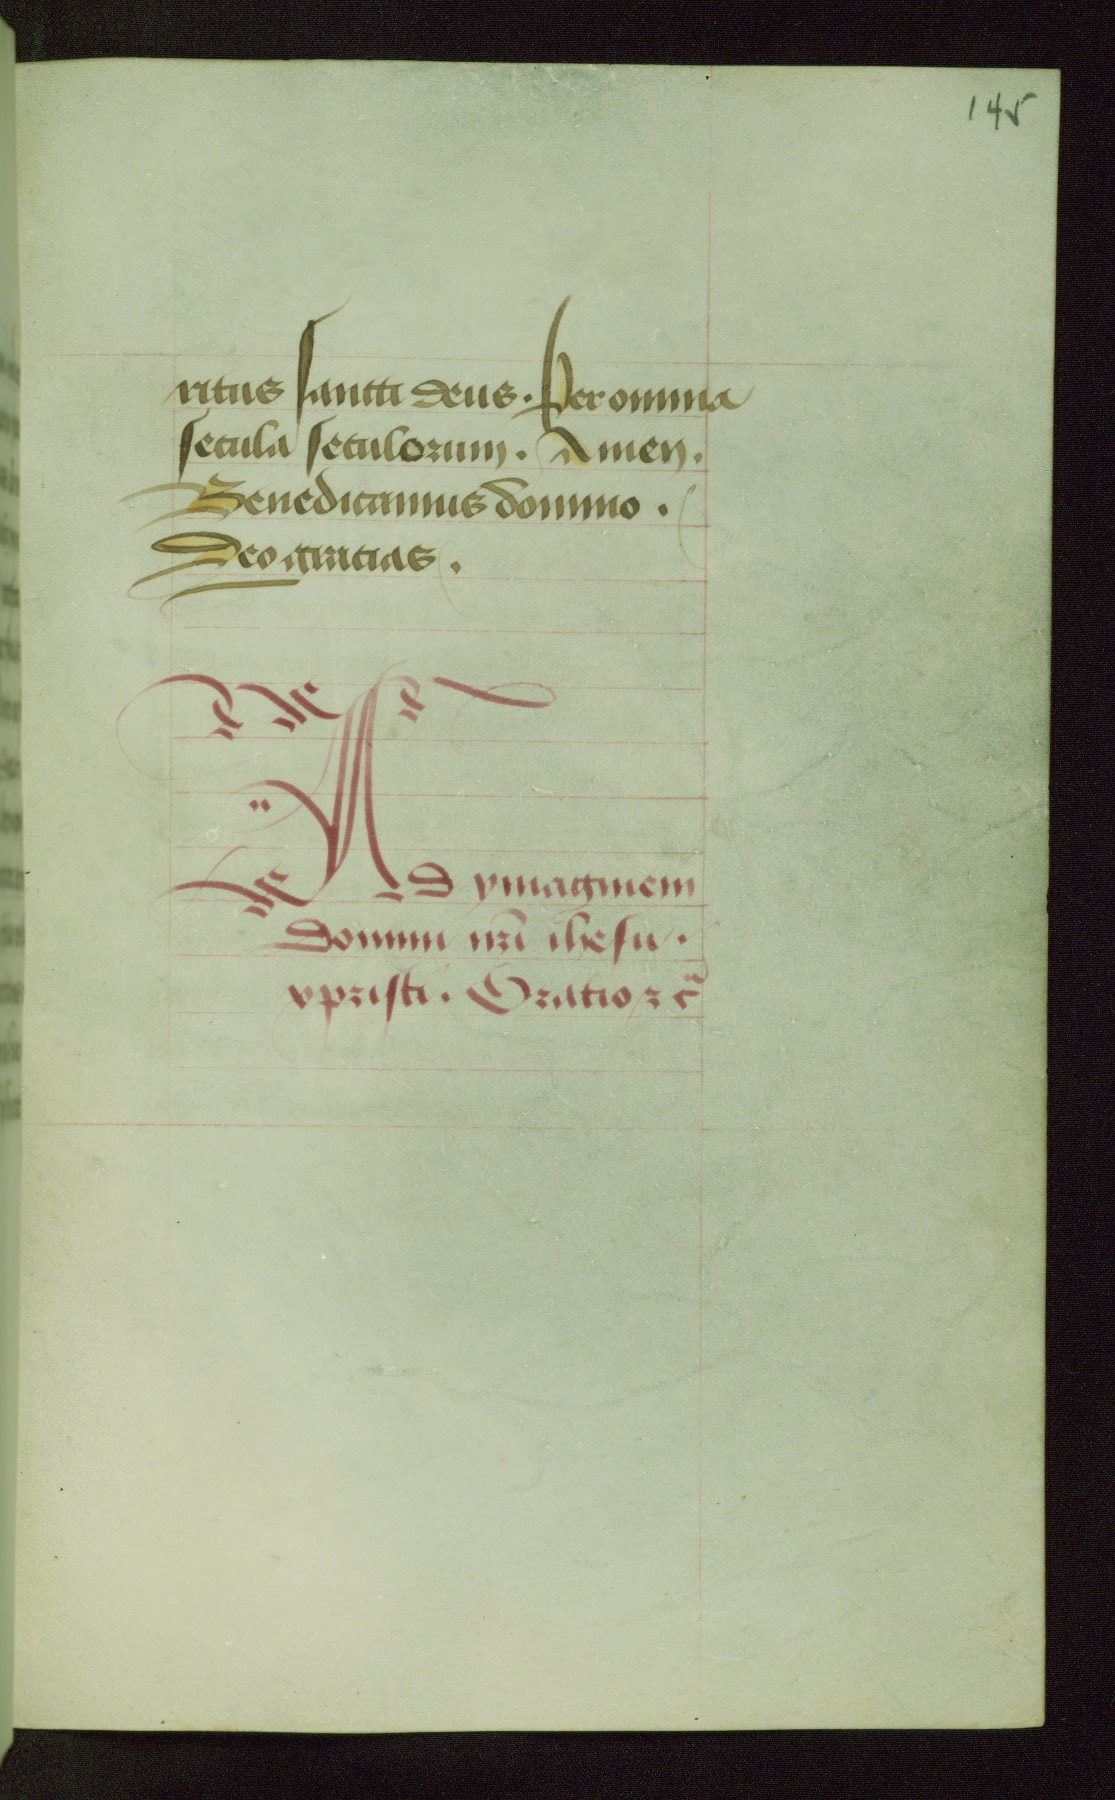 145
ritus sancti deus. Per omnia
secula seculorum. Amen.
Benedicamus domino.
Deo gratias.
AD ymaginem
Domini nri ihesu.
xpristi. Oratio